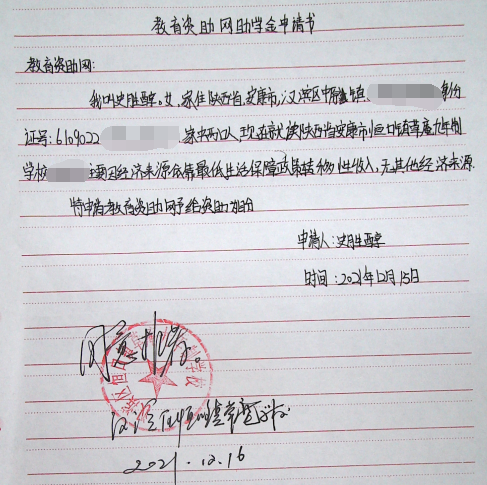 教育资助网助学金申请书
教育资助网:
我叫史胜 女,家住陕西省,安康市,汉滨区中 镇, 身份
证号:6109022 家中两口人,现在就读陕西省安康市恒口镇 九年制
学校 主要因经济来源依靠最低生活保障政策转移性收入,无其他经济来源.
特申请教育资助网予给资助 份
申请人:史胜
时间:2021年12月15日
同意推荐。
汉滨区恒口镇 学校
2021.12.16